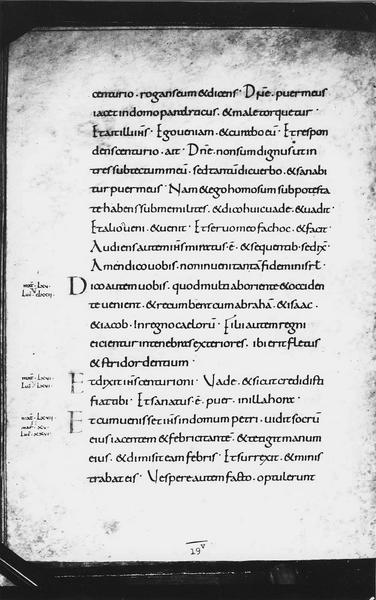 centurio. rogans eum & dicens. Dñe. puer meus
iacet in domo paraliticus. & male torquetur.
Et ait illi ihs. Ego ueniam. & curabo eũ. Et respon
dens centurio. ait. Dñe. non sum dignus ut in
tres sub tectum meũ. sed tantũ dic uerbo. & sanabi
tur puer meus. Nam & ego homo sum sub potesta
te habens sub me milites. & dico huic uade. & uadit.
Et alio ueni. & uenit. Et seruo meo fac hoc. & facit.
Audiens autem ihs miratus. ē. & sequentib. se dix.
Amen dico uobis. non inueni tantã fidem in isrl.
Dico autem uobis. quod multi ab oriente & occiden
te uenient. & recumbent cum abrahã. & isaac.
& iacob. In regno caelorũ. Filii autem regni
eicientur in tenebras exteriores. ibi erit fletus
& stridor dentium.
Et dixit ihs centurioni. Vade. & sicut credidisti
fiat tibi. Et sanatus. ē. puer. in illa hora.
Et cum uenisset ihs in domum petri. uidit socrũ
eius iacentem & febricitantē. & tetigit manum
eius. & dimisit eam febris. Et surrexit. & minis
trabat eis. Vespere autem facto. optulerunt
19v